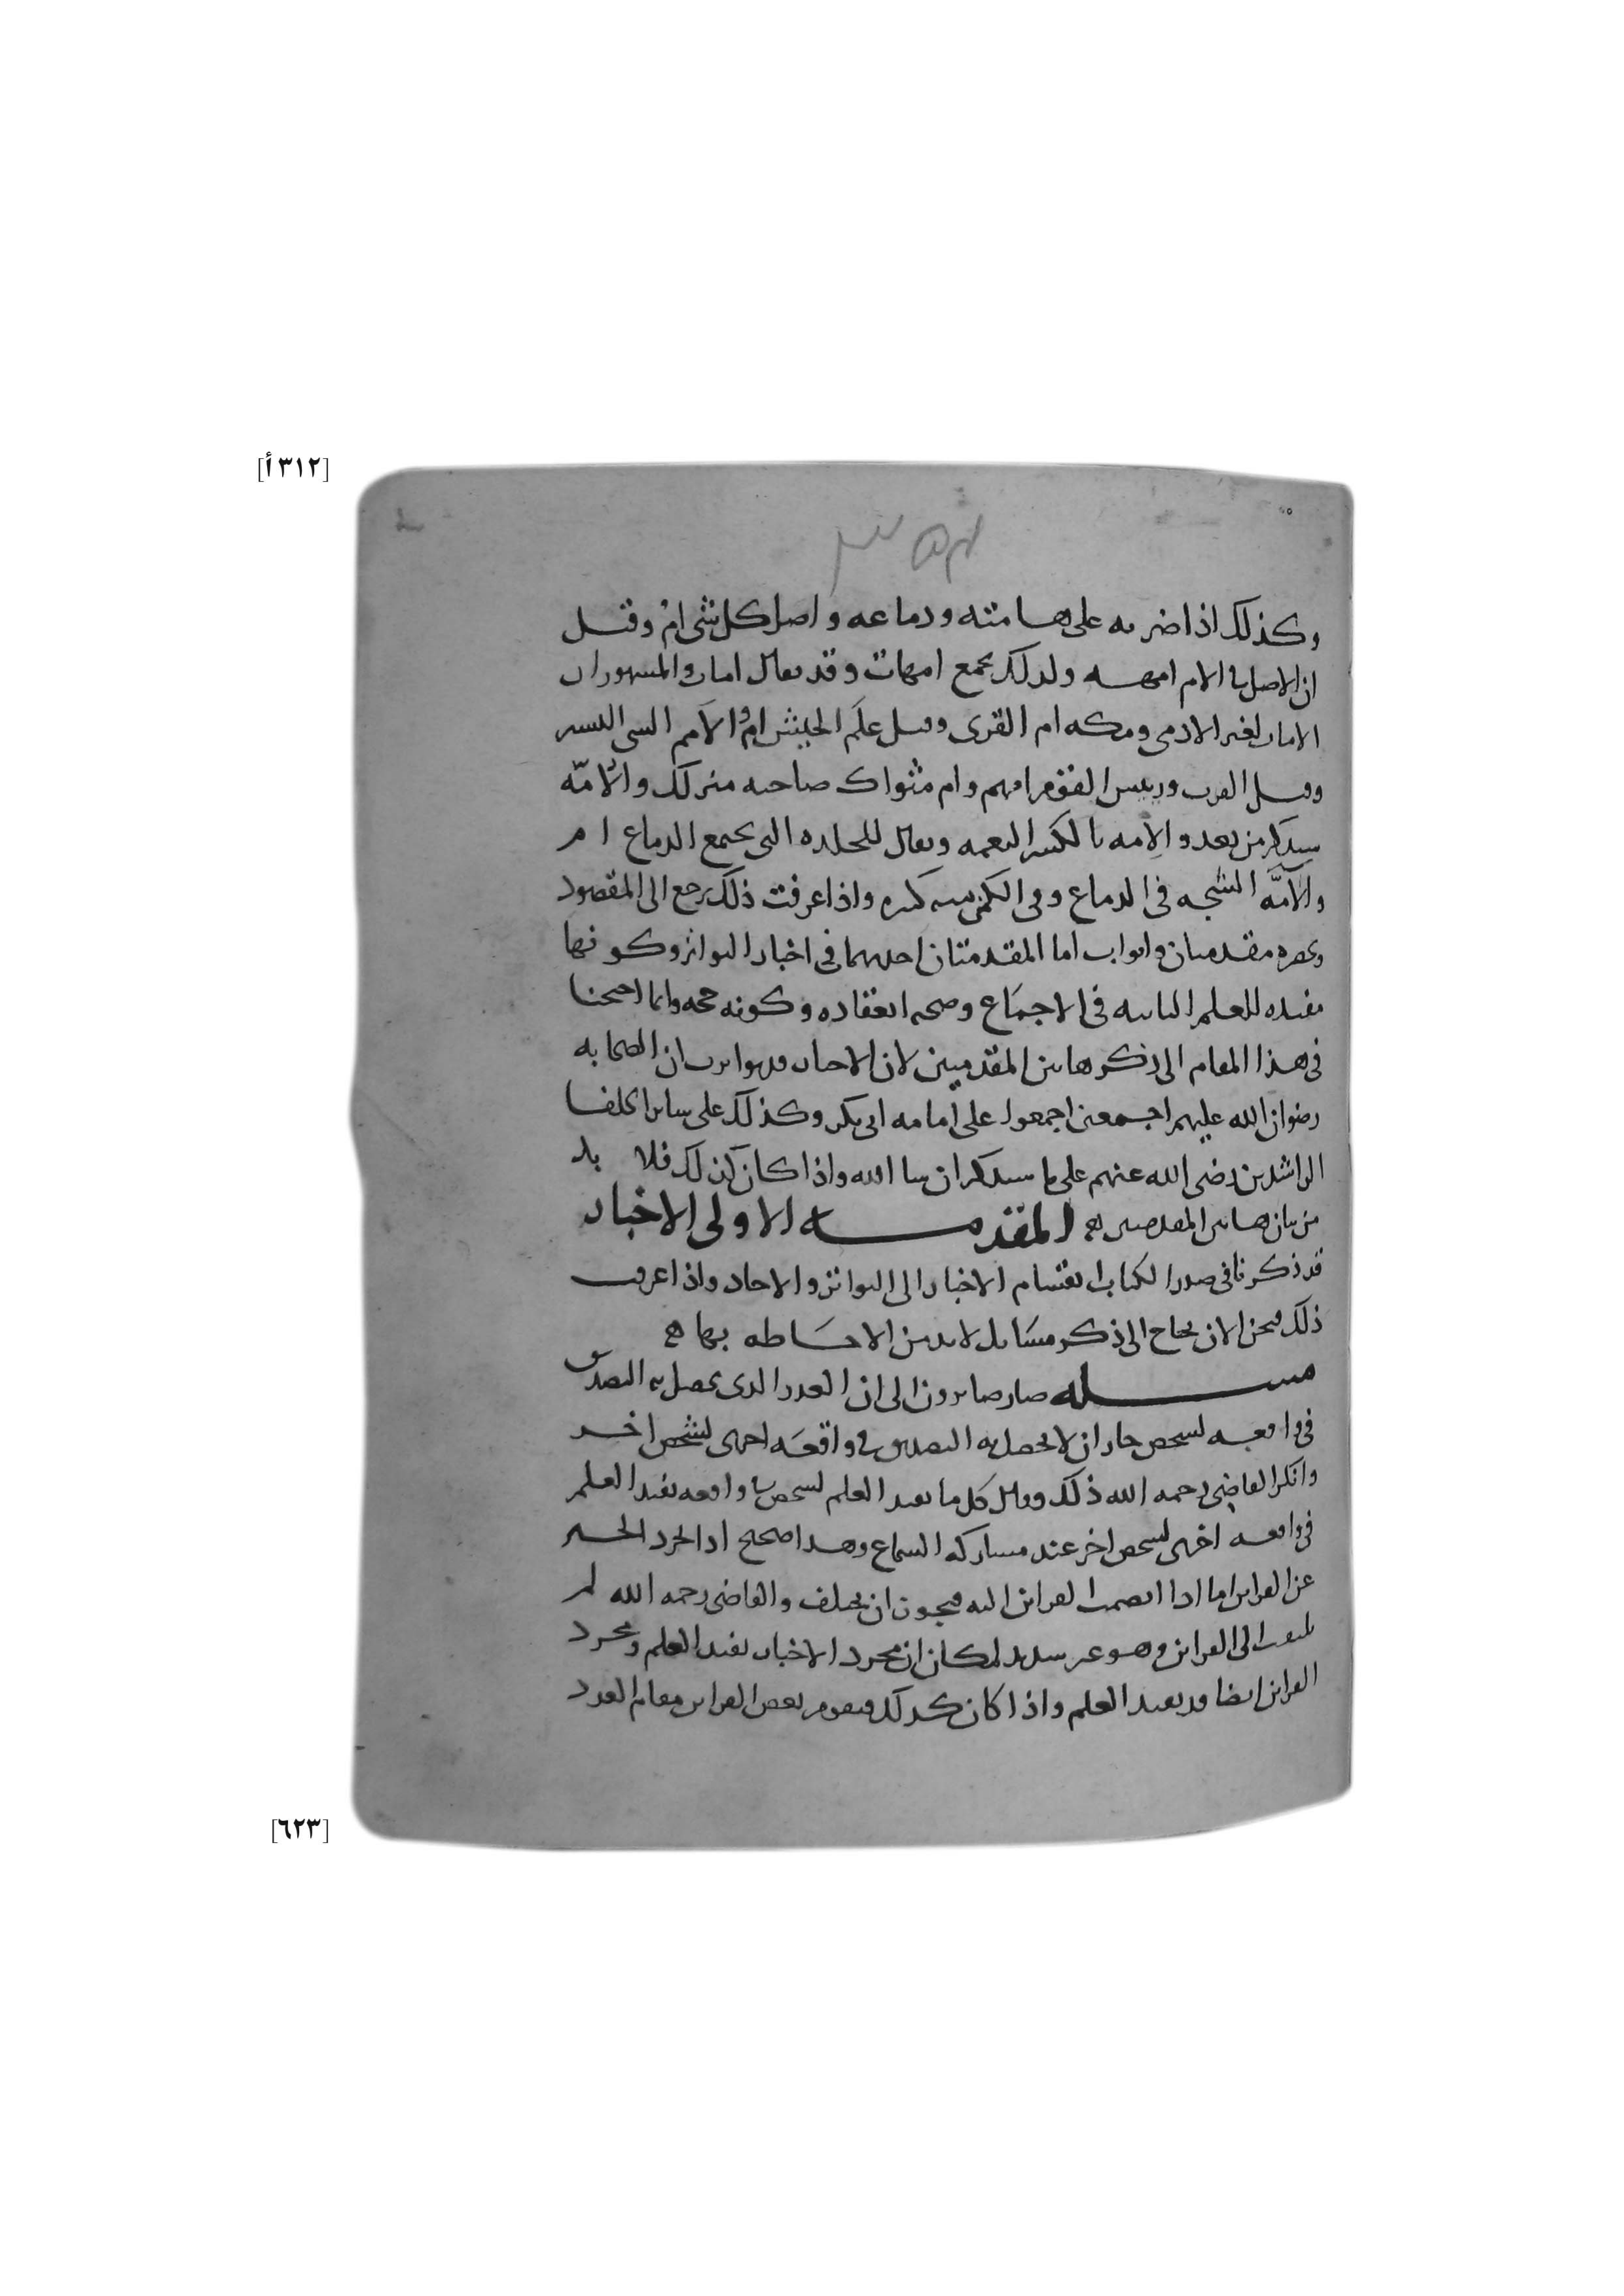 [٣١٢أ]
وكذلك اذا ضربه على هامته ودماعه واصل كل شى ام وقيل
ان الاصل فى الام امهه ولذلك يجمع امهات وقد يقال امات والمشهور ان
الامات لغير الادمى ومكه ام القرى وقيل علم الجيش ام والامم الشى اليسير
وقيل القرب ورييس القوم امهم وام مثواك صاحبه منزلك والامّه
سيذكر من بعد والإمه بالكسر النعمه ويقال للجلده التى تجمع الدماع ام
والآمّه الشجه فى الدماع واذا عرفت ذلك رجع الى المقصود
مقدمتان وابواب اما المقدمتان احدهما فى اخبار التواتر وكونها
مفيده للعلم الثانيه فى الاجماع وصحه انعقاده وكونه حجه وانما احتجنا
فى هذا المقام الى ذكر هاتين المقدمتين لان الاحاد قد تواترت ان الصحابه
رضوان الله عليهم اجمعين اجمعوا على امامه ابى بكر وكذلك على ساير الخلفا
الراشدين رضى الله عنهم على ما سيذكر ان شا الله واذا كان كذلك فلا بد
من بيان هاتين المقدمتين ه المقدمه الاولى الاخبار
قد ذكرنا فى صدر الكتاب انقسام الاخبار الى التواتر والاحاد واذا عرفت
ذلك فنحن الان نحتاج الى ذكر مسايل لابد من الاحاطه بها ه
مسله صار صايرون الى ان العدد الذى يحصل به التصديق
فى واقعه لشخص جاز ان لا يحصل به التصديق فى واقعه اخرى لشخص اخر
وانكر القاضى رحمه الله ذلك وقال كل ما يفيد العلم لشخص فى واقعه يفيد العلم
فى واقعه اخرى لشخص اخر عند مشاركه السماع وهذا صحيح اذا تجرد الخبر
عن القراين اما اذا انضمت القراين اليه فيجوز ان يختلف والقاضى رحمه الله لم
يلتفت الى القراين وهو غير سديد لمكان ان مجرد الاخبار يفيد العلم ومجرد
القراين ايضا قد يفيد العلم واذا كان كذلك فيقوم بعض القراين مقام العدد
[٦٢٣]